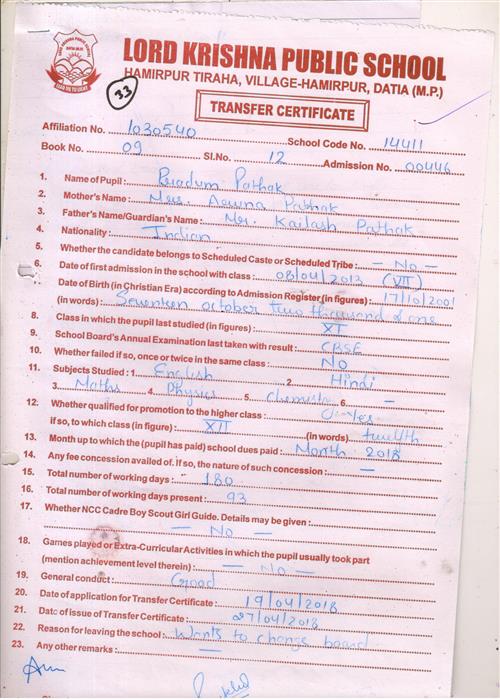 LORD KRISHNA PUBLIC SCHOOL
HAMIRPUR TIRAHA, VILLAGE-HAMIRPUR, DATIA (M.P.)
33
TRANSFER CERTIFICATE
Affiliation No. 1030540 School Code No. 14411
Book No. 09 Sl.No. 12 Admission No. 00446
1. Name of Pupil : Pathak
2. Mother's Name : Mrs. Pathak
3. Father's Name/Guardian's Name : Mr. Kailash Pathak
4. Nationality : Indian
5. Whether the candidate belongs to Scheduled Caste or Scheduled Tribe : - No -
6. Date of first admission in the school with class : 08/04/2013 (VII)
7. Date of Birth (in Christian Era) according to Admission Register (in figures) : 17/10/2001
(in words) : Seventeen october two thousand & one
8. Class in which the pupil last studied (in figures) : XI
9. School Board's Annual Examination last taken with result : CBSE
10. Whether failed if so, once or twice in the same class : NO
11. Subjects Studied : 1. English 2. Hindi
3. Maths 4. Physics 5. chemistry 6. -
12. Whether qualified for promotion to the higher class : Yes
if so, to which class (in figure) : XII (in words) twelth
13. Month up to which the (pupil has paid) school dues paid : Month 2018
14. Any fee concession availed of. If so, the nature of such concession : -
15. Total number of working days : 180
16. Total number of working days present : 93
17. Whether NCC Cadre Boy Scout Girl Guide. Details may be given :
- No -
18. Games played or Extra-Curricular Activities in which the pupil usually took part
(mention achievement level therein) : - No -
19. General conduct : Good
20. Date of application for Transfer Certificate : 19/04/2018
21. Date of issue of Transfer Certificate : 27/04/2018
22. Reason for leaving the school : Wants to change board
23. Any other remarks : -